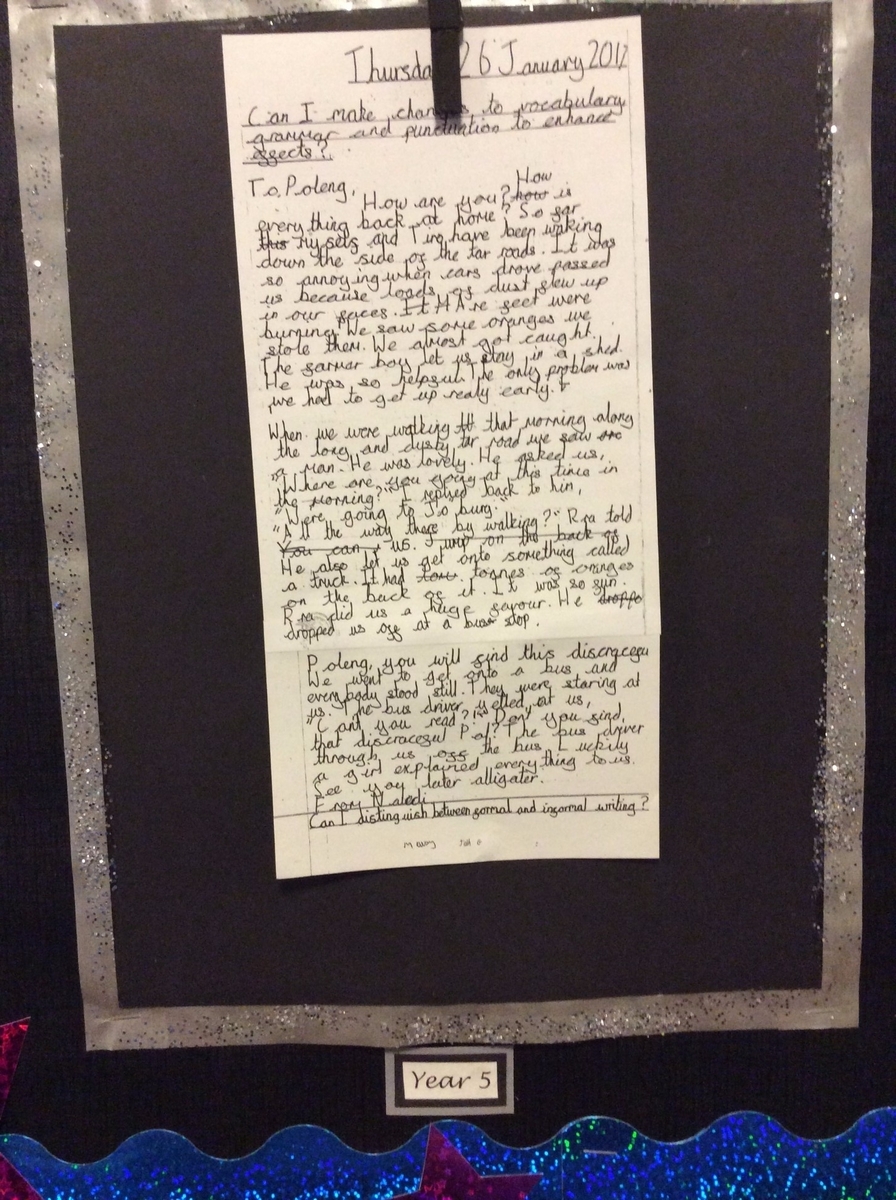 Thursda 26 January 2017
Can I make changes to vocabulary
grammar and punctuation to enhance
effects?
How
To Poleng,
How are you? how is
everything back at home? So far
this my self and Tiro have been waking
down the side of the tar roads. It was
so annoying when cars drove passed
us because loads of dust flew up
in our faces. Are feet were
burning. We saw some oranges we
stole them. We almost got caught.
The farmer boy let us stay in a shed.
He was so helpful. The only problem was
we had to get up realy early.
When we were walking that morning along
the long and dusty tar road we saw are
a man. He was lovely. He asked us,
"Where are you going at this time in
the morning?" I replied back to him,
"Were going to Jo burg."
"All the way there by walking?" Rra told
You can us. Jump on the back of
He also let us get onto something called
a truck. It had tonnes of oranges
on the back of it. It was so fun.
Rra did us a huge favour. He droppe
dropped us off at a bus stop.
Poleng, you will find this discracefu
We went to get onto a bus and
everybody stood still. They were staring at
us. The bus driver yelled at us,
"Cant you read?!" Don't you find
that discraceful Pol? The bus driver
through us off the bus. Luckily
a girl explained everything to us.
See you later alligater.
From Naledi
Can I distinguish between formal and informal writing?
Year 5